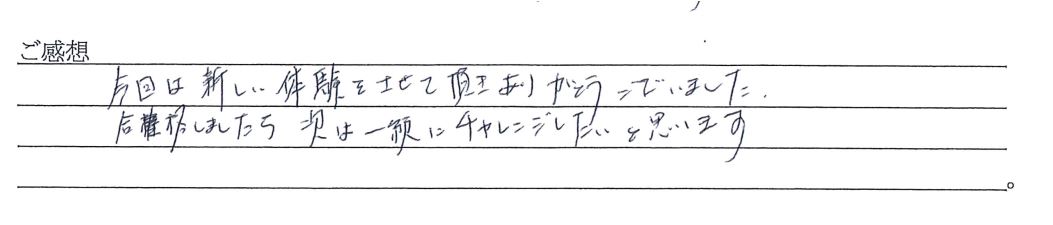 ご感想
今回は新しい体験をさせて頂きありがとうございました.
合格しましたら次は一級にチャレンジしたいと思います
。